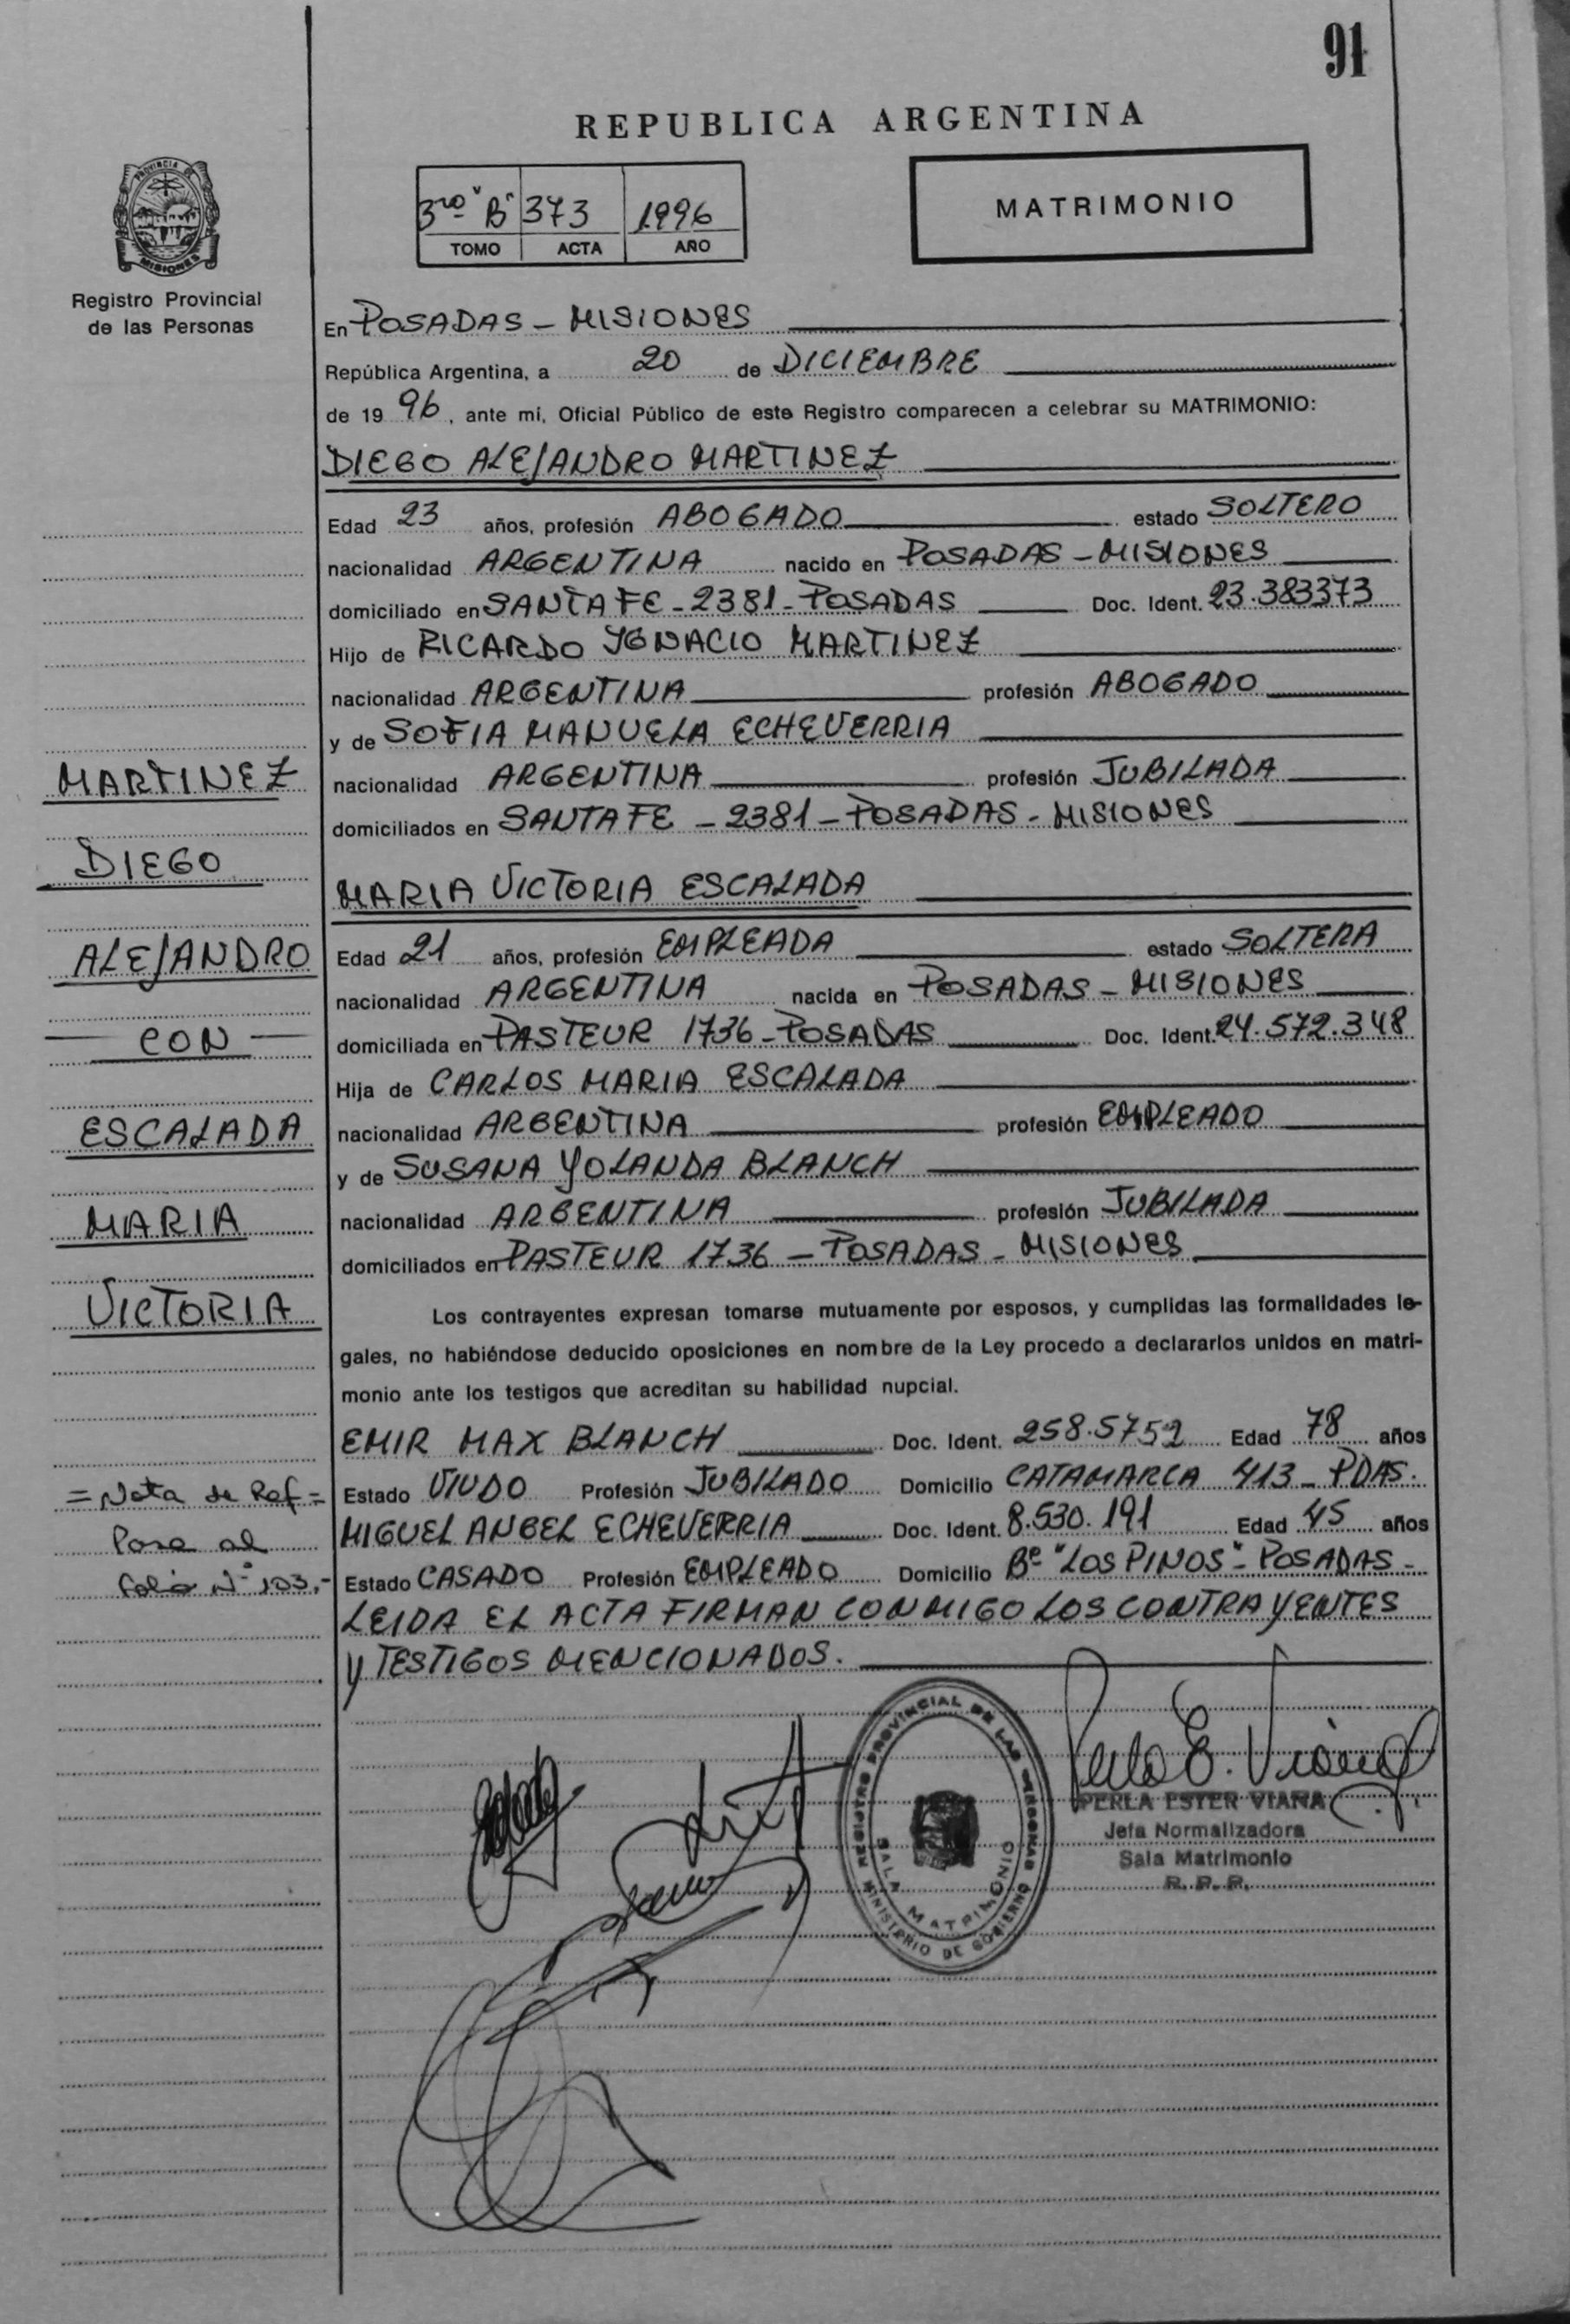 91
REPUBLICA ARGENTINA
3ro "B" 373 1996
TOMO ACTA AÑO
MATRIMONIO
PROVINCIA DE
MISIONES
Registro Provincial
de las Personas
En POSADAS - MISIONES
República Argentina, a 20 de DICIEMBRE
de 19 96, ante mí, Oficial Público de este Registro comparecen a celebrar su MATRIMONIO:
DIEGO ALEJANDRO MARTINEZ
Edad 23 años, profesión ABOGADO estado SOLTERO
nacionalidad ARGENTINA nacido en POSADAS - MISIONES
domiciliado en SANTA FE - 2381 - POSADAS Doc. Ident. 23.383373
Hijo de RICARDO YGNACIO MARTINEZ
nacionalidad ARGENTINA profesión ABOGADO
y de SOFIA MANUELA ECHEVERRIA
nacionalidad ARGENTINA profesión JUBILADA
domiciliados en SANTA FE - 2381 - POSADAS - MISIONES
MARIA VICTORIA ESCALADA
Edad 21 años, profesión EMPLEADA estado SOLTERA
nacionalidad ARGENTINA nacida en POSADAS - MISIONES
domiciliada en PASTEUR 1736 - POSADAS Doc. Ident. 24.572.348
Hija de CARLOS MARIA ESCALADA
nacionalidad ARGENTINA profesión EMPLEADO
y de SUSANA YOLANDA BLANCH
nacionalidad ARGENTINA profesión JUBILADA
domiciliados en PASTEUR 1736 - POSADAS - MISIONES
Los contrayentes expresan tomarse mutuamente por esposos, y cumplidas las formalidades le-
gales, no habiéndose deducido oposiciones en nombre de la Ley procedo a declararlos unidos en matri-
monio ante los testigos que acreditan su habilidad nupcial.
EMIR MAX BLANCH Doc. Ident. 258.5752 Edad 78 años
Estado VIUDO Profesión JUBILADO Domicilio CATAMARCA 413 - PDAS.
MIGUEL ANGEL ECHEVERRIA Doc. Ident. 8.530.191 Edad 45 años
Estado CASADO Profesión EMPLEADO Domicilio Bº "LOS PINOS" - POSADAS -
LEIDA EL ACTA FIRMAN CONMIGO LOS CONTRAYENTES
Y TESTIGOS MENCIONADOS.
MARTINEZ
DIEGO
ALEJANDRO
- CON -
ESCALADA
MARIA
VICTORIA
= Nota de Ref =
Pasa al
folio Nº 103.-
REGISTRO PROVINCIAL DE LAS PERSONAS
SALA MATRIMONIO
MINISTERIO DE GOBIERNO
Perla E. Viana
PERLA ESTER VIANA
Jefa Normalizadora
Sala Matrimonio
R. P. P.